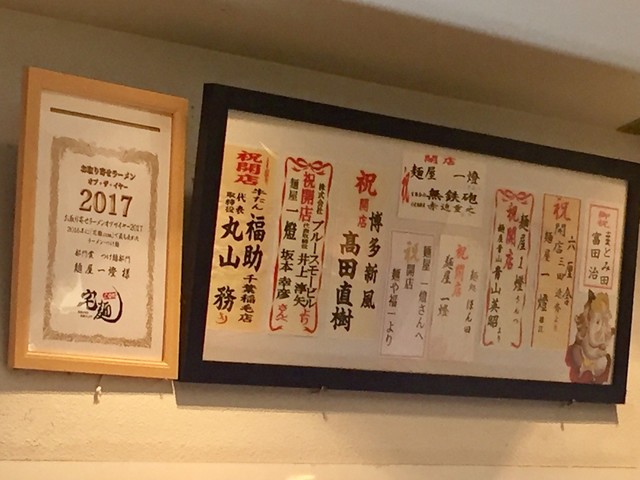 お取り寄せラーメン
オブ・ザ・イヤー
2017
お取り寄せラーメンオブザイヤー2017
部門賞 つけ麺部門
麺屋一燈様
宅麺
祝開店
牛たん 福助 千葉稲毛店
代表取締役 丸山 務
株式会社 ブルースモービル
代表取締役 井上 淳矢より
祝開店
麺屋 一燈 坂本幸彦さんへ
祝開店
博多新風
高田直樹
開店
祝
麺屋 一燈
無鉄砲
赤迫重之
麺屋 一燈さんへ
祝開店
麺や福一より
麺処 ほん田
祝開店
麺屋 一燈
麺屋 一燈さんへ
祝開店
麺屋青山 青山英昭より
六厘舎
祝開店
三田遼斉より
麺屋 一燈
御祝
とみ田
富田 治